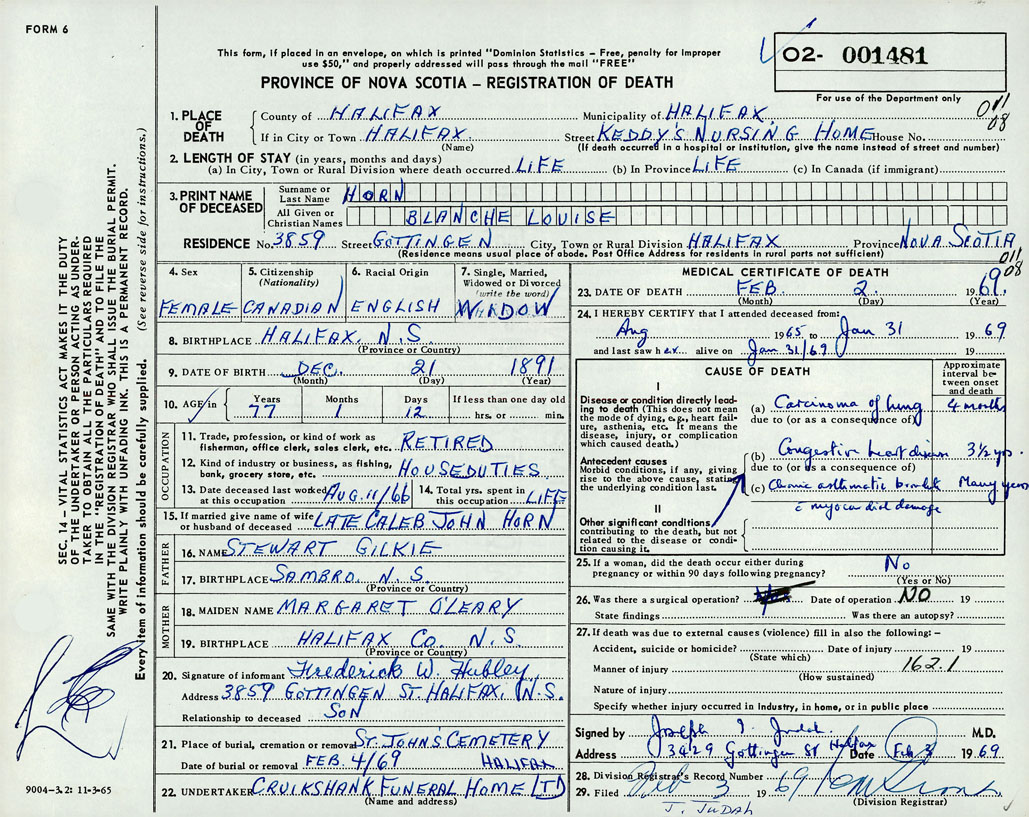 FORM 6
This form, if placed in an envelope, on which is printed "Dominion Statistics – Free, penalty for improper
use $50," and properly addressed will pass through the mail "FREE"
PROVINCE OF NOVA SCOTIA – REGISTRATION OF DEATH
02- 001481
For use of the Department only
011
08
1. PLACE OF DEATH
County of HALIFAX Municipality of HALIFAX
If in City or Town HALIFAX Street KEDDY'S NURSING HOME House No.
(Name) (If death occurred in a hospital or institution, give the name instead of street and number)
2. LENGTH OF STAY (in years, months and days)
(a) In City, Town or Rural Division where death occurred LIFE (b) In Province LIFE (c) In Canada (if immigrant)
3. PRINT NAME OF DECEASED
Surname or Last Name HORN
All Given or Christian Names BLANCHE LOUISE
RESIDENCE No. 3859 Street GOTTINGEN City, Town or Rural Division HALIFAX Province NOVA SCOTIA
(Residence means usual place of abode. Post Office Address for residents in rural parts not sufficient)
011
08
4. Sex FEMALE
5. Citizenship (Nationality) CANADIAN
6. Racial Origin ENGLISH
7. Single, Married, Widowed or Divorced (write the word) WIDOW
8. BIRTHPLACE HALIFAX, N.S.
(Province or Country)
9. DATE OF BIRTH DEC. 21 1891
(Month) (Day) (Year)
10. AGE in Years Months Days If less than one day old
77 1 12 hrs. or min.
OCCUPATION
11. Trade, profession, or kind of work as fisherman, office clerk, sales clerk, etc. RETIRED
12. Kind of industry or business, as fishing, bank, grocery store, etc. HOUSEDUTIES
13. Date deceased last worked at this occupation AUG. 11/66 14. Total yrs. spent in this occupation LIFE
15. If married give name of wife or husband of deceased LATE CALEB JOHN HORN
FATHER
16. NAME STEWART GILKIE
17. BIRTHPLACE SAMBRO, N.S.
(Province or Country)
MOTHER
18. MAIDEN NAME MARGARET O'LEARY
19. BIRTHPLACE HALIFAX CO. N.S.
(Province or Country)
20. Signature of informant Frederick W. Hubley
Address 3859 GOTTINGEN ST. HALIFAX, N.S.
Relationship to deceased SON
21. Place of burial, cremation or removal ST. JOHN'S CEMETERY
Date of burial or removal FEB. 4/69 HALIFAX
22. UNDERTAKER CRUIKSHANK FUNERAL HOME LTD
(Name and address)
MEDICAL CERTIFICATE OF DEATH
23. DATE OF DEATH FEB. 2. 1969.
(Month) (Day) (Year)
24. I HEREBY CERTIFY that I attended deceased from:
Aug 1965 to Jan 31 1969
and last saw her alive on Jan 31/69 19
CAUSE OF DEATH
Approximate interval between onset and death
I
Disease or condition directly leading to death (This does not mean the mode of dying, e.g., heart failure, asthenia, etc. It means the disease, injury, or complication which caused death.)
(a) Carcinoma of lung 4 months
due to (or as a consequence of)
Antecedent causes
Morbid conditions, if any, giving rise to the above cause, stating the underlying condition last.
(b) Congestive heart disease 3½ yrs.
due to (or as a consequence of)
(c) Chronic asthmatic bronchitis Many years
c̄ myocardial damage
II
Other significant conditions contributing to the death, but not related to the disease or condition causing it.
25. If a woman, did the death occur either during pregnancy or within 90 days following pregnancy? No
(Yes or No)
26. Was there a surgical operation? Date of operation NO 19
State findings Was there an autopsy?
27. If death was due to external causes (violence) fill in also the following: –
Accident, suicide or homicide? Date of injury 19
(State which)
Manner of injury 162.1
(How sustained)
Nature of injury
Specify whether injury occurred in Industry, in home, or in public place
Signed by Joseph I. Judah M.D.
Address 3429 Gottingen St Halifax Date Feb 3 1969
28. Division Registrar's Record Number
29. Filed Feb 3 1969
(Division Registrar)
J. JUDAH
SEC. 14 – VITAL STATISTICS ACT MAKES IT THE DUTY
OF THE UNDERTAKER OR PERSON ACTING AS UNDER-
TAKER TO OBTAIN ALL THE PARTICULARS REQUIRED
IN THE "REGISTRATION OF DEATH" AND TO FILE THE
SAME WITH THE DIVISION REGISTRAR WHO SHALL ISSUE THE BURIAL PERMIT.
WRITE PLAINLY WITH UNFADING INK. THIS IS A PERMANENT RECORD.
Every item of information should be carefully supplied. (See reverse side for instructions.)
9004-3.2: 11-3-65